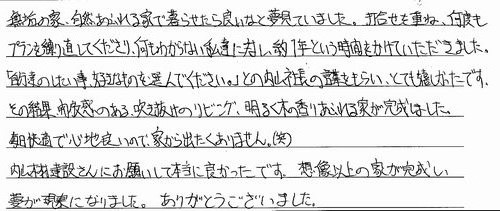 無垢の家、自然あふれる家で暮らせたら良いなと夢見ていました。打合せを重ね、何度も
プランを練り直してくださり、何もわからない私達に対し、約1年という時間をかけていただきました。
「お友達のしたい事、好きなものを選んでください。」との内山社長の言葉をもらい、とても嬉しかったです。
その結果、開放感のある、吹き抜けのリビング、明るく木の香りあふれる家が完成しました。
毎日快適で心地良いので、家から出たくありません。(笑)
内山木材建設さんにお願いして本当に良かったです。想像以上の家が完成し
夢が現実になりました。ありがとうございました。